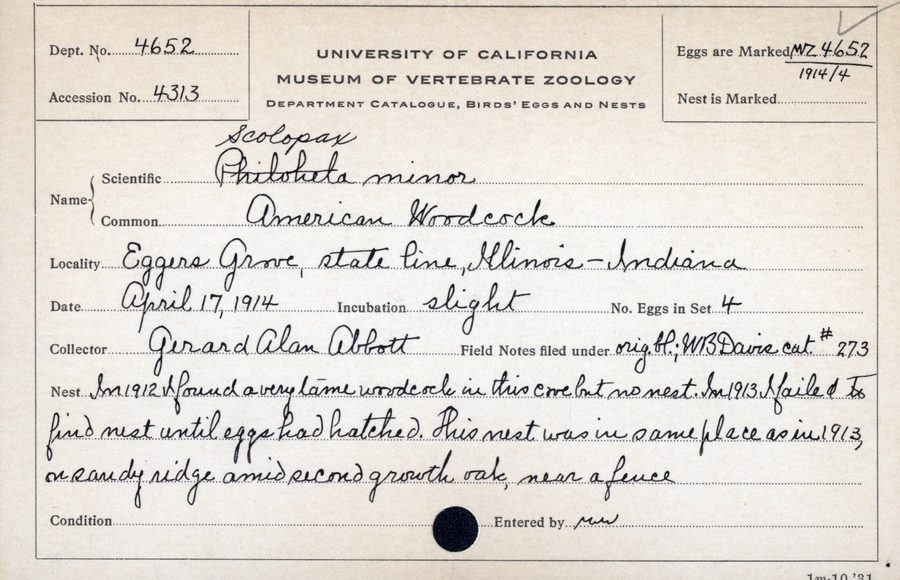 Dept. No. 4652
Accession No. 4313
UNIVERSITY OF CALIFORNIA
MUSEUM OF VERTEBRATE ZOOLOGY
DEPARTMENT CATALOGUE, BIRDS' EGGS AND NESTS
Eggs are Marked MVZ 4652
1914/4
Nest is Marked
Scolopax
Name
Scientific Philohela minor
Common American Woodcock
Locality Eggers Grove, state line, Illinois-Indiana
Date April 17, 1914 Incubation slight No. Eggs in Set 4
Collector Gerard Alan Abbott Field Notes filed under orig. bl.; WB Davis cat. # 273
Nest In 1912 I found a very tame woodcock in this cove but no nest. In 1913 I failed to
find nest until eggs had hatched. This nest was in same place as in 1913,
on sandy ridge amid second growth oak, near a fence
Condition Entered by
1m-10,'31